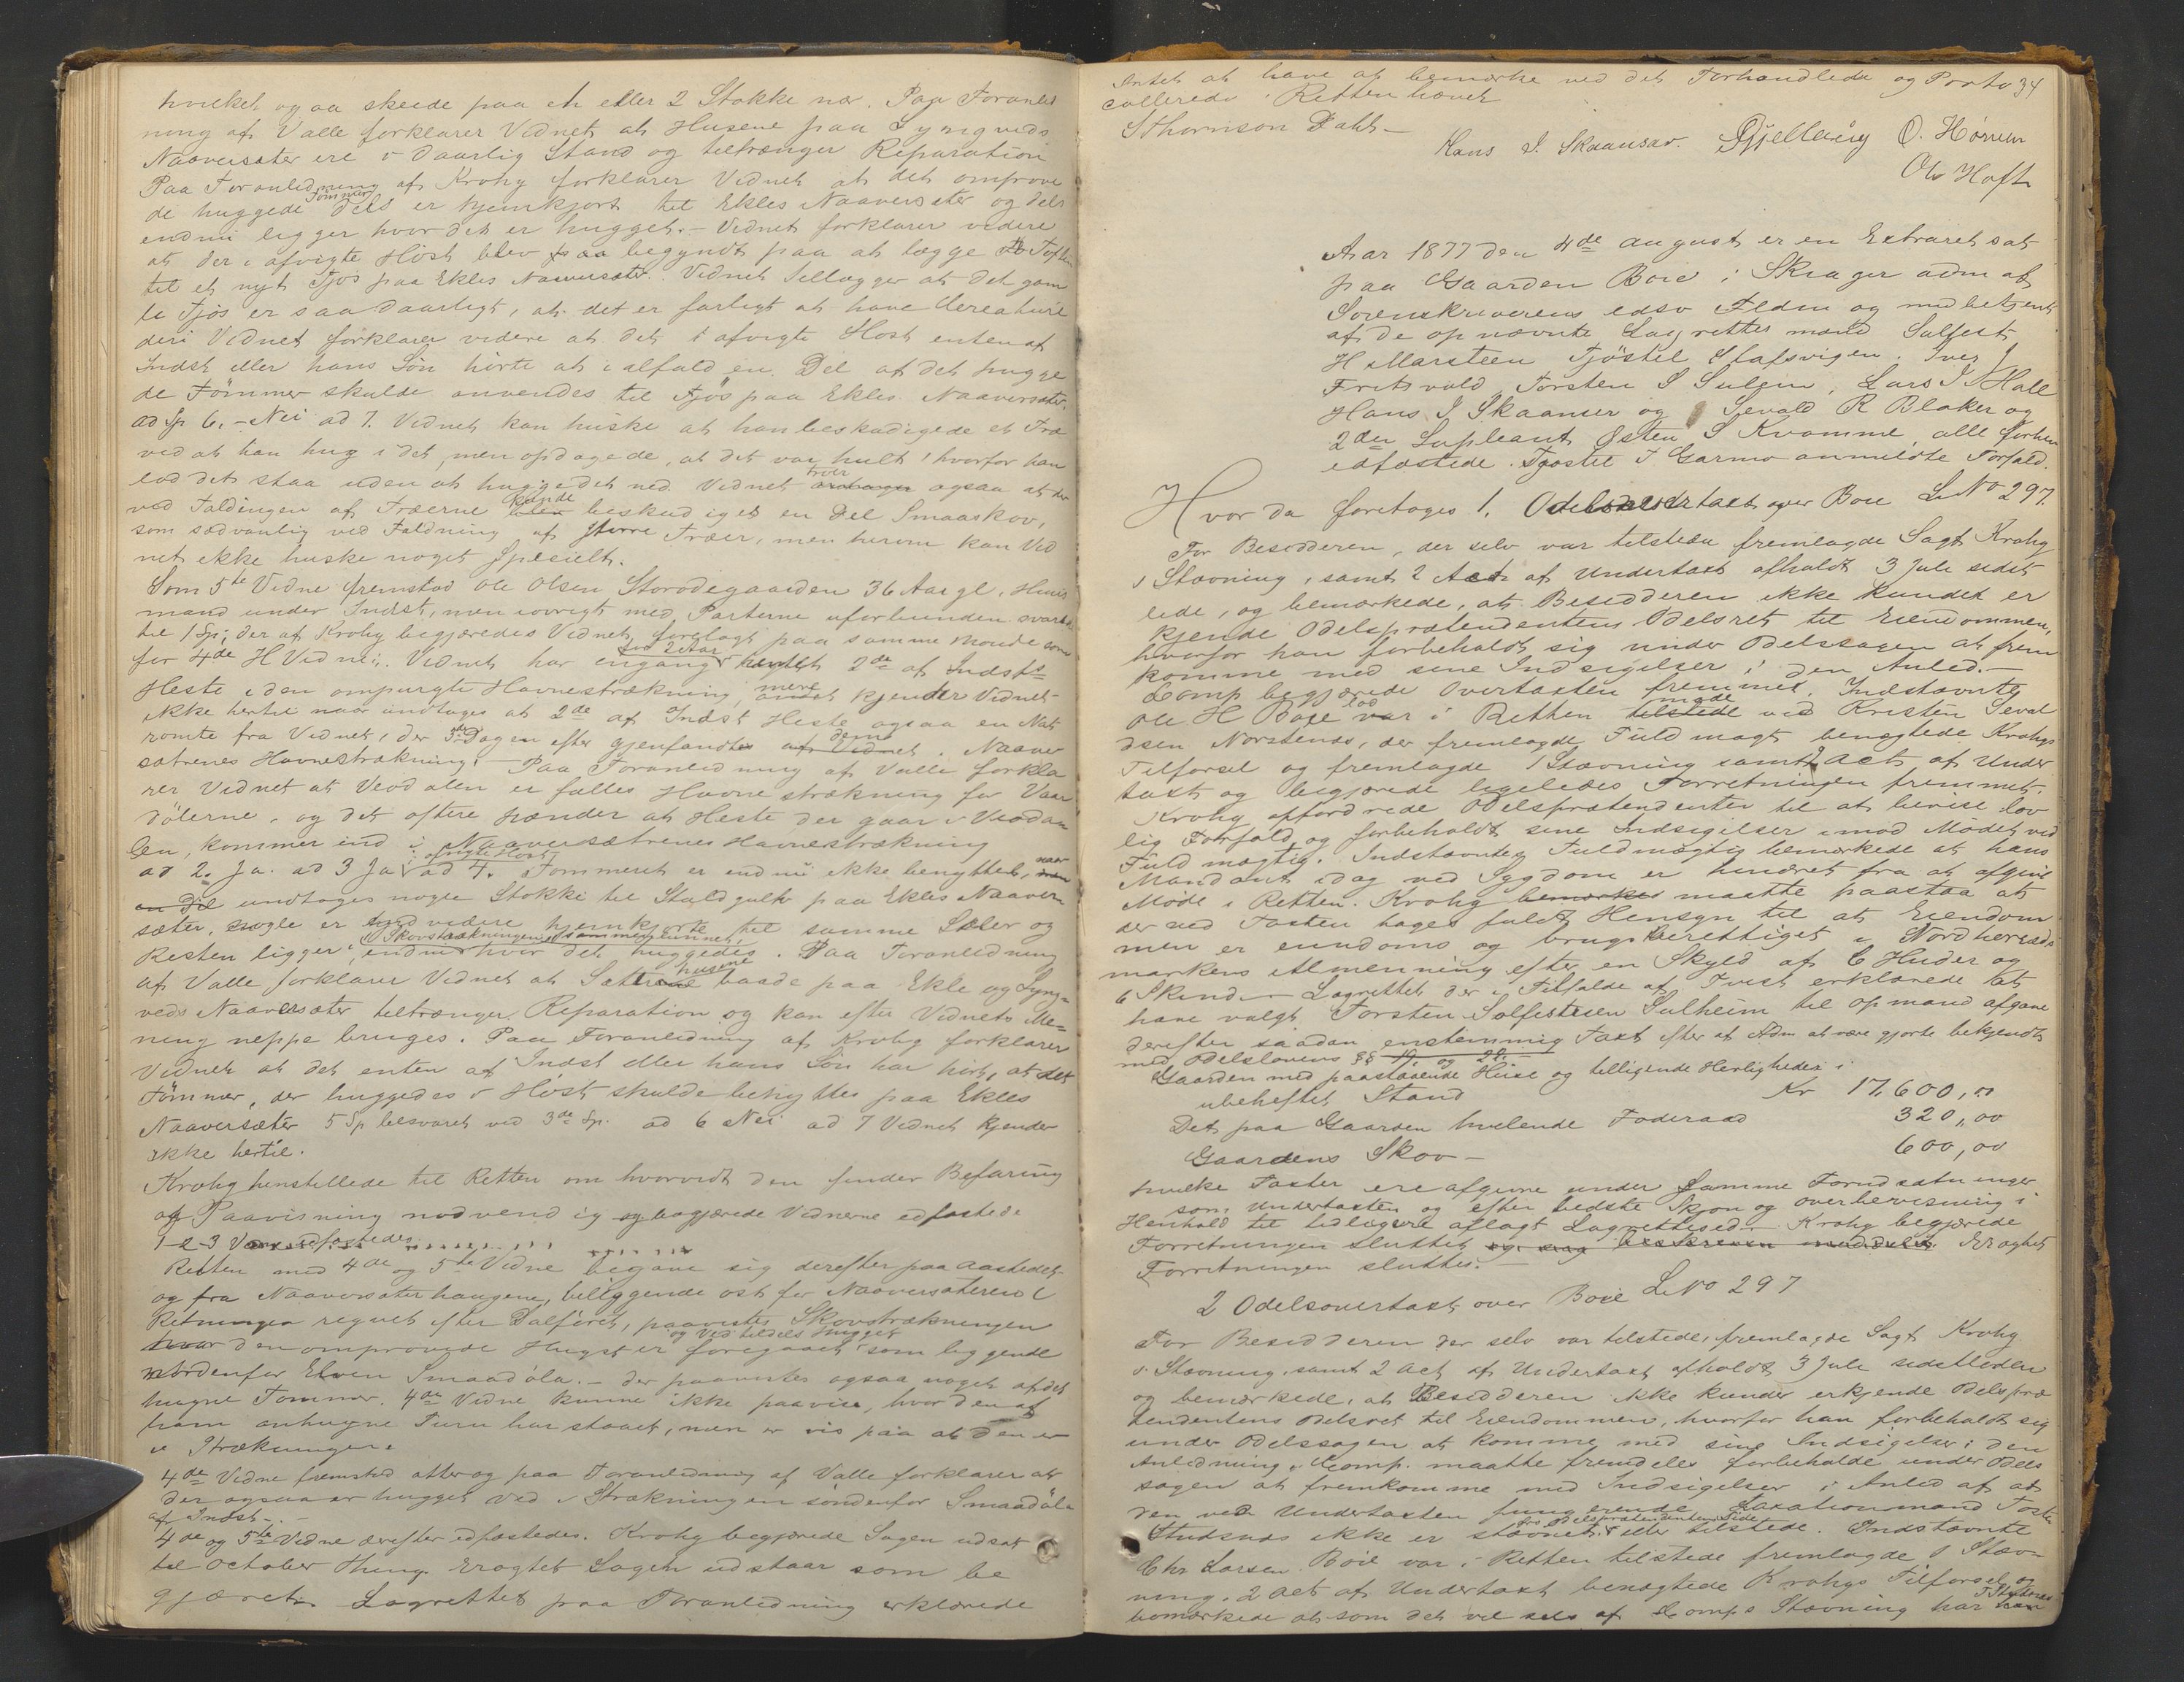 hvilket ogsaa skeede paa en eller 2 Stokke nær. Paa Foranled
ning af Valle forklarer Vidnet at Husene paa Lyngveds
Naaversæter ere i daarlig Stand og tiltrænger Reparation
Paa Foranledning af Krohg forklarer Vidnet at det omprove
de huggede Tømmer dels er hjemkjørt til Ekles Naaversæter og dels
endnu ligger hvor det er hugget. - Vidnet forklarer videre
at der i afvigte Høst blev paa begyndt paa at lægge Toften
til et nyt Fjøs paa Ekles Naaversæter. Vidnet tillægger at det gam
le Fjøs er saa daarligt, at det er farligt at have Creaturer
deri Vidnet forklarer videre at det i afvigte Høst enten af
Indst eller hans Søn hørte at i alfald en Del af det hugge
de Tømmer skulde anvendes til Fjøs paa Ekles Naaversæter.
ad Sp 6. - Nei ad 7. Vidnet kan huske at han beskadigede et Træ
ved at han hug i det, men opdagede, at det var hult, hvorfor han
lod det staa uden at hugge det ned. Vidnet troer ogsaa at der
ved Faldingen af Træerne kunde beskadiges en Del Smaaskov,
som sædvanlig ved Faldning af større Træer, men herom kan Vid
net ikke huske noget specielt.
Som 5te Vidne fremstod Ole Olsen Storødegaarden 36 Aar gl. Huus
mand under Indst, men iøvrigt med Parterne uforbunden svarte
til 1 Sp; der af Krohg begjæredes Vidnet forelagt paa samme Maade som
for 4de H Vidne: Vidnet har engang for 2 Aar hentet 2de af Indsts
Heste i den ompurgte Havnestrækning, mere kjender Vidnet
ikke hertil naar undtages at 2de af Indst Heste ogsaa en Nat
rømte fra Vidnet, der 3de Dagen efter gjenfandt dem i Naaver
sætrenes Havnestrækning. - Paa Foranledning af Valle forkla
rer Vidnet at Veodalen er fælles Havnestrækning for Vaar
dølerne, og det oftere hænder at Heste der gaar i Veodaa
len, kommer ind i Naaversætrenes Havnestrækning
ad 2. Ja. ad 3 Ja i afvigte Høst ad 4. Tømmeret er endnu ikke benyttet, naar
undtages nogle Stokke til Staldgulv paa Ekles Naaver
sæter, nogle er hjemkjørte til samme Sæter og
Resten ligger i Skovstrækningen endnu hvor det huggedes. Paa Foranledning
af Valle forklarer Vidnet at Sæterhusene baade paa Ekle og Lyng=
veds Naaversæter tiltrænger Reparation og kan efter Vidnets Me=
ning neppe bruges. Paa Foranledning af Krohg forklarer
Vidnet at det enten af Indst eller hans Søn har hørt, at det
Tømmer, der huggedes i Høst skulde benyttes paa Ekles
Naaversæter 5 Sp besvaret ved 3de Sp. ad 6 Nei ad 7 Vidnet kjender
ikke hertil.
Krohg henstillede til Retten om hvorvidt den finder Befaring
og Paavisning nødvendig og begjærede Vidnerne edfæstede
1-2-3 Vidne edfæstedes
Retten med 4de og 5te Vidne begave sig derefter paa Aastedet
og fra Naaversæterhaugene, beliggende ost for Naaversæteren i
Retningen regnet efter Dalføret, paavistes Skovstrækningen
hvor den omprovede Hugst er foregaaet og Ved tildels hugget som liggende
nordenfor Elven Smaadøla. - der paavistes ogsaa noget af det
hugne Tømmer. 4de Vidne kunne ikke paavise, hvor den af
ham anhugne Furu har staaet, men er vis paa at den er
i Strækningen.
4de Vidne fremstod atter og paa Foranledning af Valle forklarer at
der ogsaa er hugget Ved i Strækningen søndenfor Smaadøla
af Indst. -
4de og 5te Vidne derefter edfæstedes. Krohg begjærede Sagen udsat
til October Thing. Eragtet Sagen udstaar som be
gjæret. Lagrettet paa Foranledning erklærede
Intet at have at bemærke ved det Forhandlede og Proto 34
collerede. Retten hævet
SThomson Dahl -
Hans I. Skaansar. Gjellaug O. Hørrum
Ole Hoft
Aar 1877 den 4de august er en Extraret sat
paa Gaarden Boie i Skiager adm af
Sorenskriverens edsv Fldm og medbetjent
af de opnævnte Lagrettes mænd Sulfest
H Marsteen Fjøstel Olafsvigen. Iver J
Fritsvold, Torsten S Sulem, Lars I Hall
Hans I Skaanser og Sevald R Blaker og
2den Supleant Østen S Kvamme, alle forhen
edfæstede. Tjøstel I Garmo anmeldte Forfald.
Hvor da foretages 1. Odelsovertaxt over Boie L No 297.
For Besidderen, der selv var tilstede fremlagde Sagf Krohg
1 Stævning, samt 2 Act af Undertaxt afholdt 3 Juli sidst
lede, og bemærkede, at Besidderen ikke kundet er
kjende Odelsprætendentens Odelsret til Eiendommen,
hvorfor han forbeholdt sig under Odelssagen at frem
komme med sine Indsigelser i den Anled. -
Comp begjærede Overtaxten fremmet. Indstævnte
Ole H Boie lod i Retten møde ved Kristen Seval
dsen Norstenes, der fremlagde Fuldmagt benægtede Krohgs
Tilførsel og fremlagde 1 Stævning samt 2 act af Under
taxt og begjærede ligeledes Forretningen fremmet.
Krohg opfordrede Odelsprætendenten til at bevise lov
lig Forfald og forbeholdt sine Indsigelser imod Mødet ved
Fuldmægtig. Indstævntes Fuldmægtig bemærkede at hans
Mandant idag ved Sygdom er hindret fra at afgive
Møde i Retten. Krohg maatte paastaa at
der ved Taxten tages fuldt Hensyn til at Eiendom
men er eiendoms og brugsberettiget i Nordherreds
markens Almenning efter en Skyld af 6 Huder og
6 Skind. - Lagrettet der i Tilfælde af Tvist erklærede at
have valgt Torsten Solfestsen Sulheim til opmand afgave
derefter saadan enstemmig Taxt efter at Adm at være gjorte bekjendt
med Odelslovens §§ 19 og 28. -
Gaarden med paastaaende Huse og tilligende Herligheder i
ubeheftet Stand Kr 17,600,00
Det paa Gaarden hvilende Foderaad 320,00
Gaardens Skov - 600,00
hvilke Taxter ere afgivne under samme Forudsætninger
som Undertaxten og efter bedste Skjøn og overbevisning i
Henhold til tidligere aflagt Lagrettesed. - Krohg begjærede
Forretningen sluttet Eragtet
Forretningen sluttes. -
2 Odelsovertaxt over Boie L No 297
For Besidderen der selv var tilstede, fremlagde Sagf Krohg
1 Stævning samt 2 act af Undertaxt afholdt 3 Juli sidstleden
og bemærkede, at Besidderen ikke kunde erkjende Odelspræ
tendentens Odelsret til Eiendommen, hvorfor han forbeholdt sig
under Odelssagen at komme med sine Indsigelser i den
Anledning. Comp. maatte fremdeles forbeholde under Odels
sagen at fremkomme med Indsigelser i Anled af at
den ved Undertaxten fungerende Taxationsmand Tosten
Studsnes ikke er stævnet fra Odelsprætendentens Side eller tilstede. Indstævnte
Chr Larsen Boie var i Retten tilstede fremlagde 1 Stæv-
ning, 2 act af Undertaxt benægtede Krohgs Tilførsel og
bemærkede at som det vil sees af Comps Stævning har